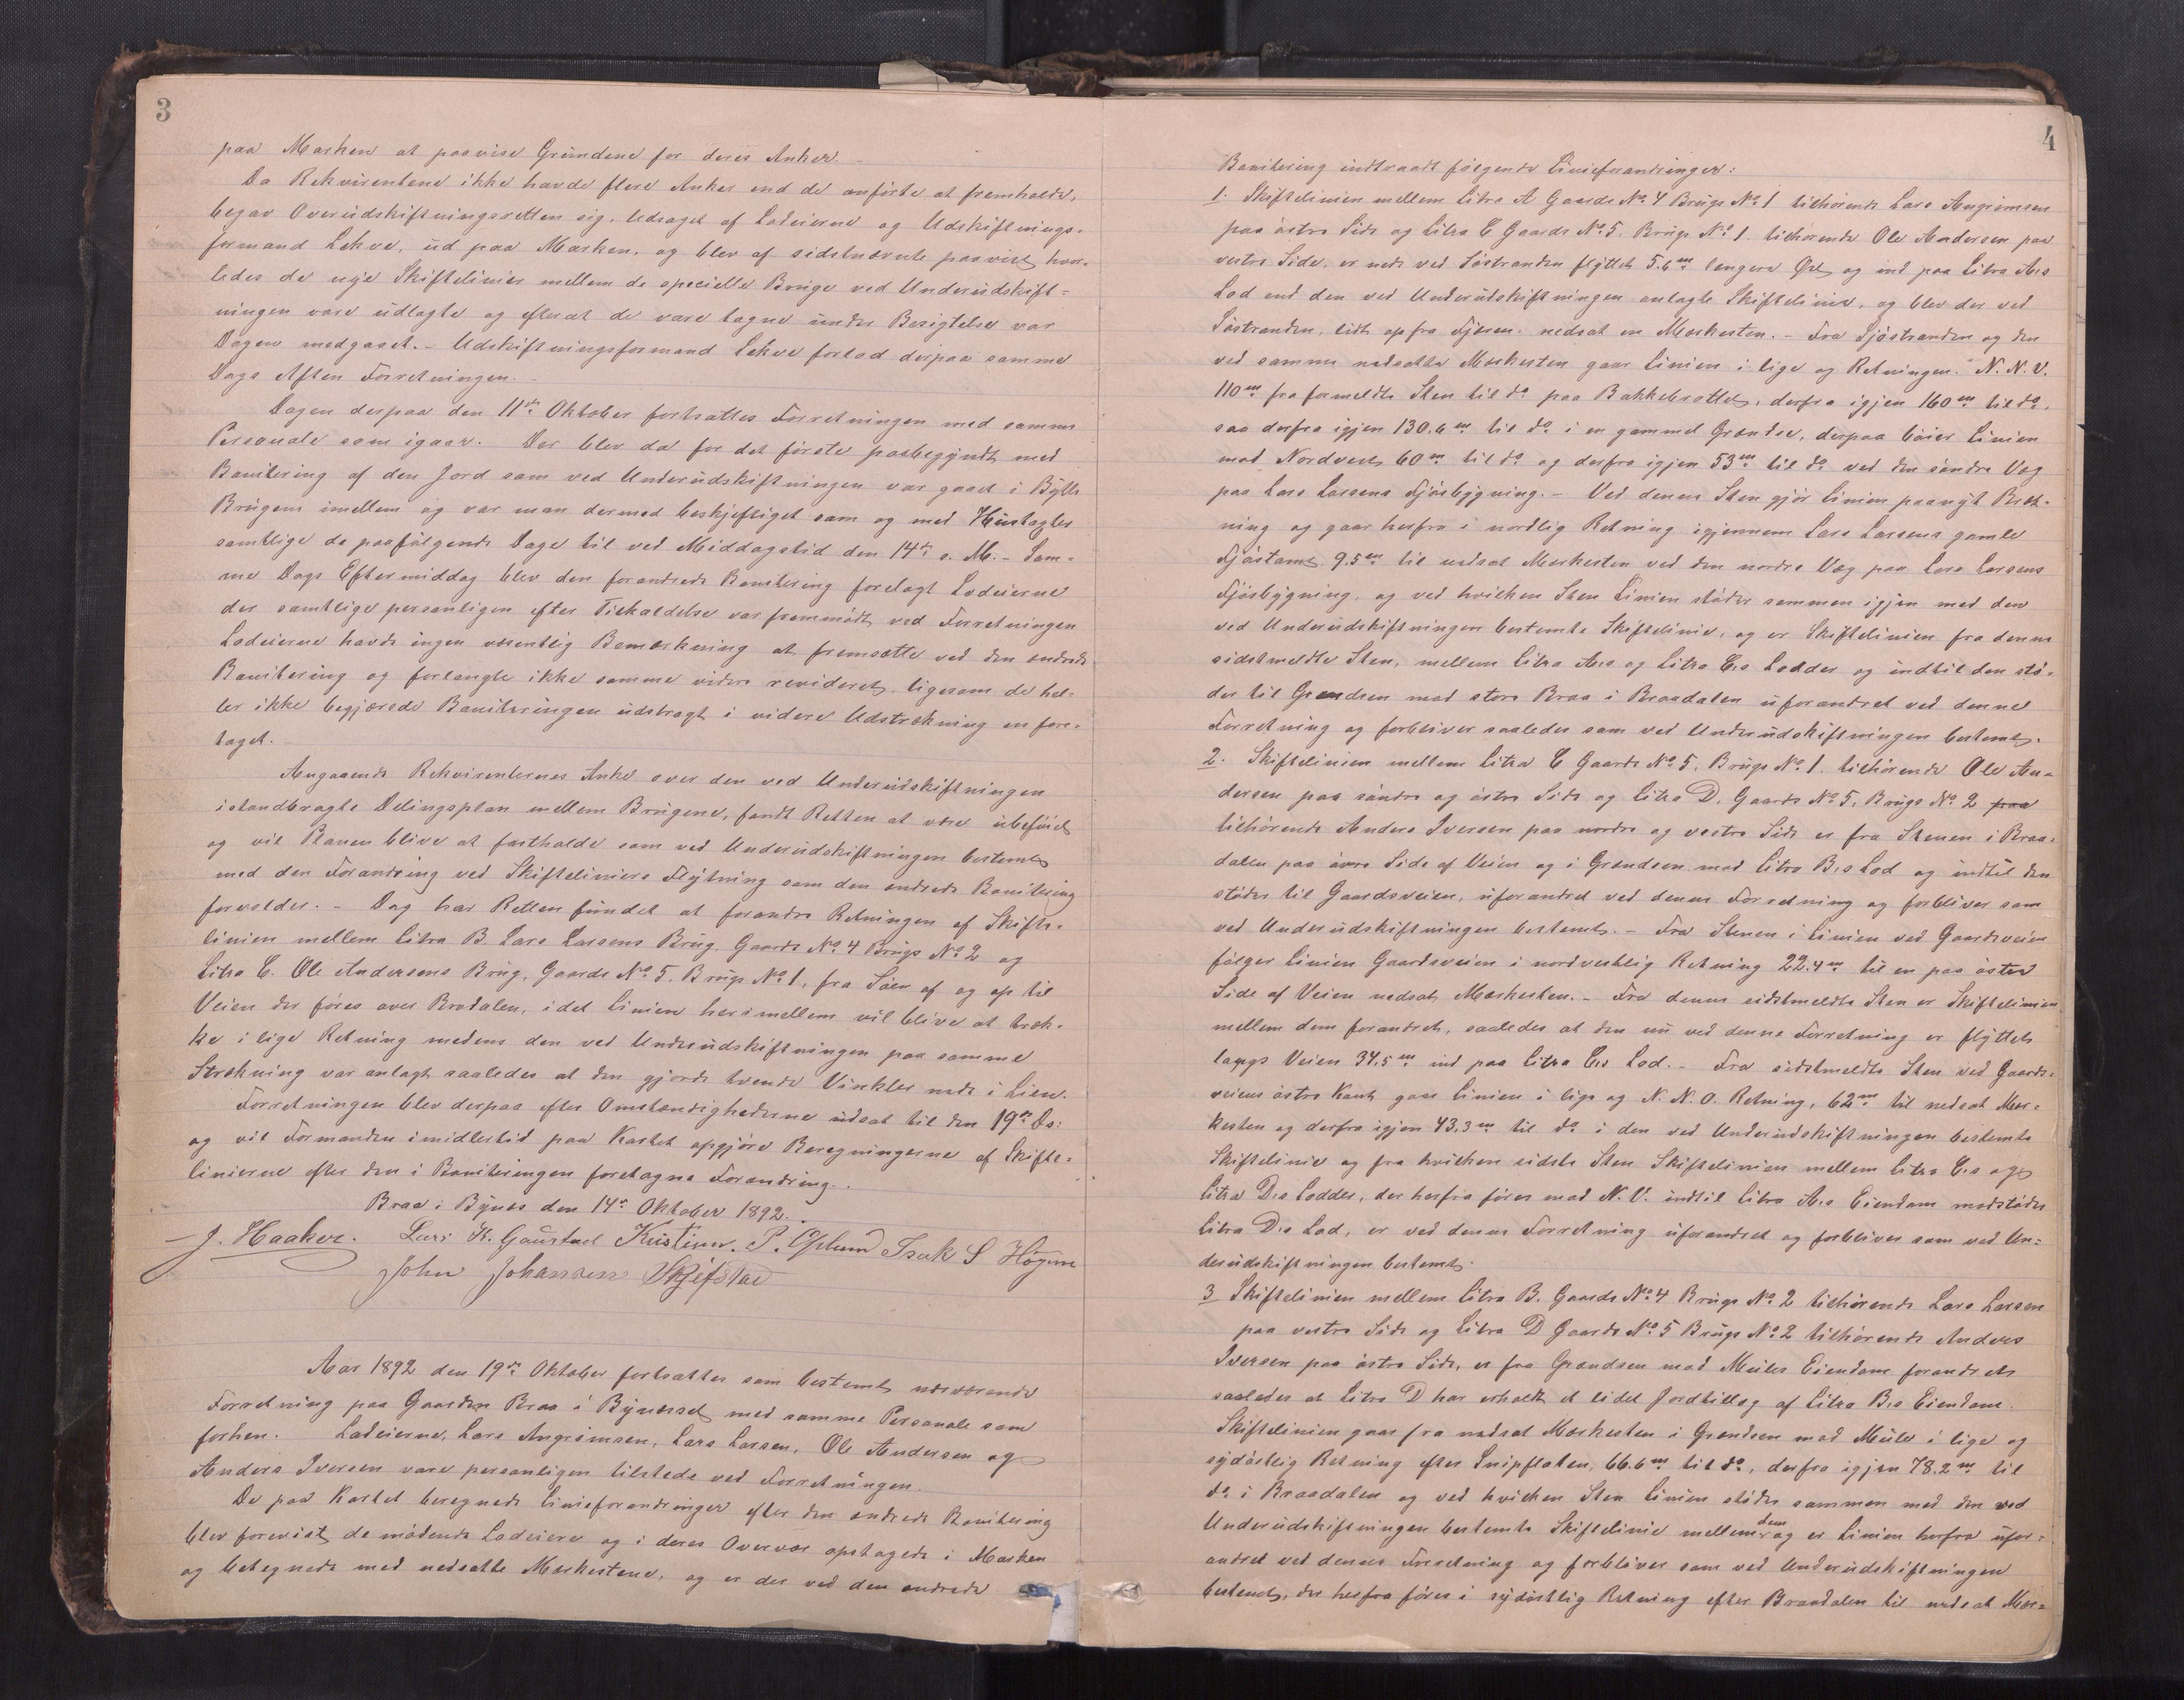 3
paa Marken at paavise Grundene for deres Anker. –
Da Rekvirentene ikke havde flere Anker end de anførte at fremholde,
begav Overudskiftningsretten sig, ledsaget af Lodeierne og Udskiftnings-
formand Lekve, ud paa Marken, og blev af sidstnævnte paavist hvor-
ledes de nye Skiftelinier mellem de specielle Brug ved Underudskift-
ningen vare udlagte og efterat de vare tagne under Besigtelse var
Dagen medgaaet. – Udskiftningsformand Lekve forlod derpaa samme
Dags Aften Forretningen. –
Dagen derpaa den 11te Oktober fortsattes Forretningen med samme
Personale som igaar. Der blev da for det første paabegyndt med
Bonitering af den Jord som ved Underudskiftningen var gaaet i Bytte
Brugene imellem og var man dermed beskjeftiget som og med Hustagter
samtlige de paafølgende Dage til ved Middagstid den 14de s. M. – Sam-
me Dags Eftermiddag blev den forandrede Bonitering forelagt Lodeierne
der samtlige personligen efter Tilkaldelse var fremmødt ved Forretningen
Lodeierne havde ingen væsentlig Bemærkning at fremsætte ved den ændrede
Bonitering og forlangte ikke samme videre revideret, ligesom de hel-
ler ikke begjærede Boniteringen udstragt i videre Udstrekning en fore-
taget. –
Angaaende Rekvirenternes Anke over den ved Underudskiftningen
istandbragte Delingsplan mellem Brugene, fandt Retten at være ubeføiet
og vil Planen blive at fastholde som ved Underudskiftningen bestemt
med den Forandring ved Skifteliniers Flytning som den ændrede Bonitering
forvolder. – Dog har Retten fundet at forandre Retningen af Skifte-
linien mellem Litra B. Lars Larsens Brug, Gaards No 4 Brugs No 2 og
Litra C. Ole Andersens Brug, Gaards No 5. Brugs No 1, fra Søen af og op til
Veien der føres over Bradalen, idet Linien hersimellem vil blive at træk-
ke i lige Retning medens den ved Underudskiftningen paa samme
Strekning var anlagt saaledes at den gjorde tvende Vinkler nede i Lien.
Forretningen blev derpaa efter Omstændighederne udsat til den 19de ds:
og vil Formanden imidlertid paa Kartet opgjøre Beregningerne af Skifte-
linierne efter den i Boniteringen foretagne Forandring. .
Braa i Bynes den 14de Oktober 1892. .
J. Haaker. Lars K. Gaustad Kristian. P. Oplund Isak S Høgmo
John Johansen Skjefstad
Aar 1892 den 19de Oktober fortsattes som bestemt nærværende
Forretning paa Gaarden Braa i Bynesset med samme Personale som
forhen. Lodeierne, Lars Angrimsen, Lars Larsen, Ole Andersen og
Anders Iversen vare personligen tilstede ved Forretningen.
De paa Kartet beregnede Linieforandringer efter den ændrede Bonitering
blev forevist de mødende Lodeiere og i deres Overvær opstagede i Marken
og betegnede med nedsatte Merkestene, og er der ved den ændrede
4
Bonitering indtraadt følgende Linieforandringer:
1. Skiftelinien mellem Litra A Gaards No 4 Brugs No 1 tilhørende Lars Angrimsen
paa østre Side og Litra C Gaards No 5. Brugs No 1. tilhørende Ole Andersen paa
vestre Side, er nede ved Søstranden flyttet 5.6 m længere Øst og ind paa Litra A.s
Lod end den ved Underudskiftningen anlagte Skiftelinie, og blev der ved
Søstranden, lidt op fra Fjæren, nedsat en Merkesten. – Fra Sjøstranden og den
ved samme nedsatte Merkesten gaar Linien i lige og Retningen N. N. V.
110 m fra formeldte Sten til do paa Bakkebrattet, derfra igjen 160 m til do,
saa derfra igjen 130.6 m til do i en gammel Grændse, derpaa bøier Linien
mod Nordvest 60 m til do og derfra igjen 53 m til do ved den søndre Væg
paa Lars Larsens Fjøsbygning. – Ved denne Sten gjør Linien paanyt Bræk-
ning og gaar herfra i nordlig Retning igjennem Lars Larsens gamle
Fjøstomt 9.5 m til nedsat Merkesten ved den nordre Væg paa Lars Larsens
Fjøsbygning, og ved hvilken Sten Linien støder sammen igjen med den
ved Underudskiftningen bestemte Skiftelinie, og er Skiftelinien fra denne
sidstmeldte Sten, mellem Litra A.s og Litra C.s Lodder og indtil den stø-
der til Grændsen mod store Braa i Braadalen uforandret ved denne
Forretning og forbliver saaledes som ved Underudskiftningen bestemt.
2. Skiftelinien mellem Litra C Gaards No 5. Brugs No 1. tilhørende Ole An-
dersen paa søndre og østre Side og Litra D. Gaards No 5. Brugs No 2 paa
tilhørende Anders Iversen paa nordre og vestre Side er fra Stenen i Braa-
dalen paa øvre Side af Veien og i Grændsen mod Litra B.s Lod og indtil den
støder til Gaardsveien, uforandret ved denne Forretning og forbliver som
ved Underudskiftningen bestemt. – Fra Stenen i Linien ved Gaardsveien
følger Linien Gaardsveien i nordvestlig Retning 22.4 m til en paa østre
Side af Veien nedsat Merkesten. – Fra denne sidstmeldte Sten er Skiftelinien
mellem dem forandret, saaledes at den nu ved denne Forretning er flyttet
langs Veien 34.5 m ind paa Litra C.s Lod. – Fra sidstmeldte Sten ved Gaards-
veiens østre Kant gaar Linien i lige og N. N. O. Retning, 62 m til nedsat Mer-
kesten og derfra igjen 43.3 m til do i den ved Underudskiftningen bestemte
Skiftelinie og fra hvilken sidste Sten Skiftelinien mellem Litra C.s og
Litra D.s Lodder, der herfra føres mod N. V. indtil Litra A.s Eiendom modstøder
Litra D.s Lod, er ved denne Forretning uforandret og forbliver som ved Un-
derudskiftningen bestemt.
3 Skiftelinien mellem Litra B. Gaards No 4 Brugs No 2 tilhørende Lars Larsen
paa vestre Side og Litra D Gaards No 5 Brugs No 2 tilhørende Anders
Iversen paa østre Side, er fra Grændsen mod Meiles Eiendom forandret
saaledes at Litra D har erholdt et lidet Jordtillæg af Litra B.s Eiendom.
Skiftelinien gaar fra nedsat Merkesten i Grændsen mod Meile i lige og
sydøstlig Retning efter Snipflaten, 66.6 m til do, derfra igjen 78.2 m til
do i Braadalen og ved hvilken Sten Linien støder sammen med den ved
Underudskiftningen bestemte Skiftelinie mellem dem og er Linien herfra ufor-
andret ved denne Forretning og forbliver som ved Underudskiftningen
bestemt, der herfra føres i sydøstlig Retning efter Braadalen til nedsat Mer-